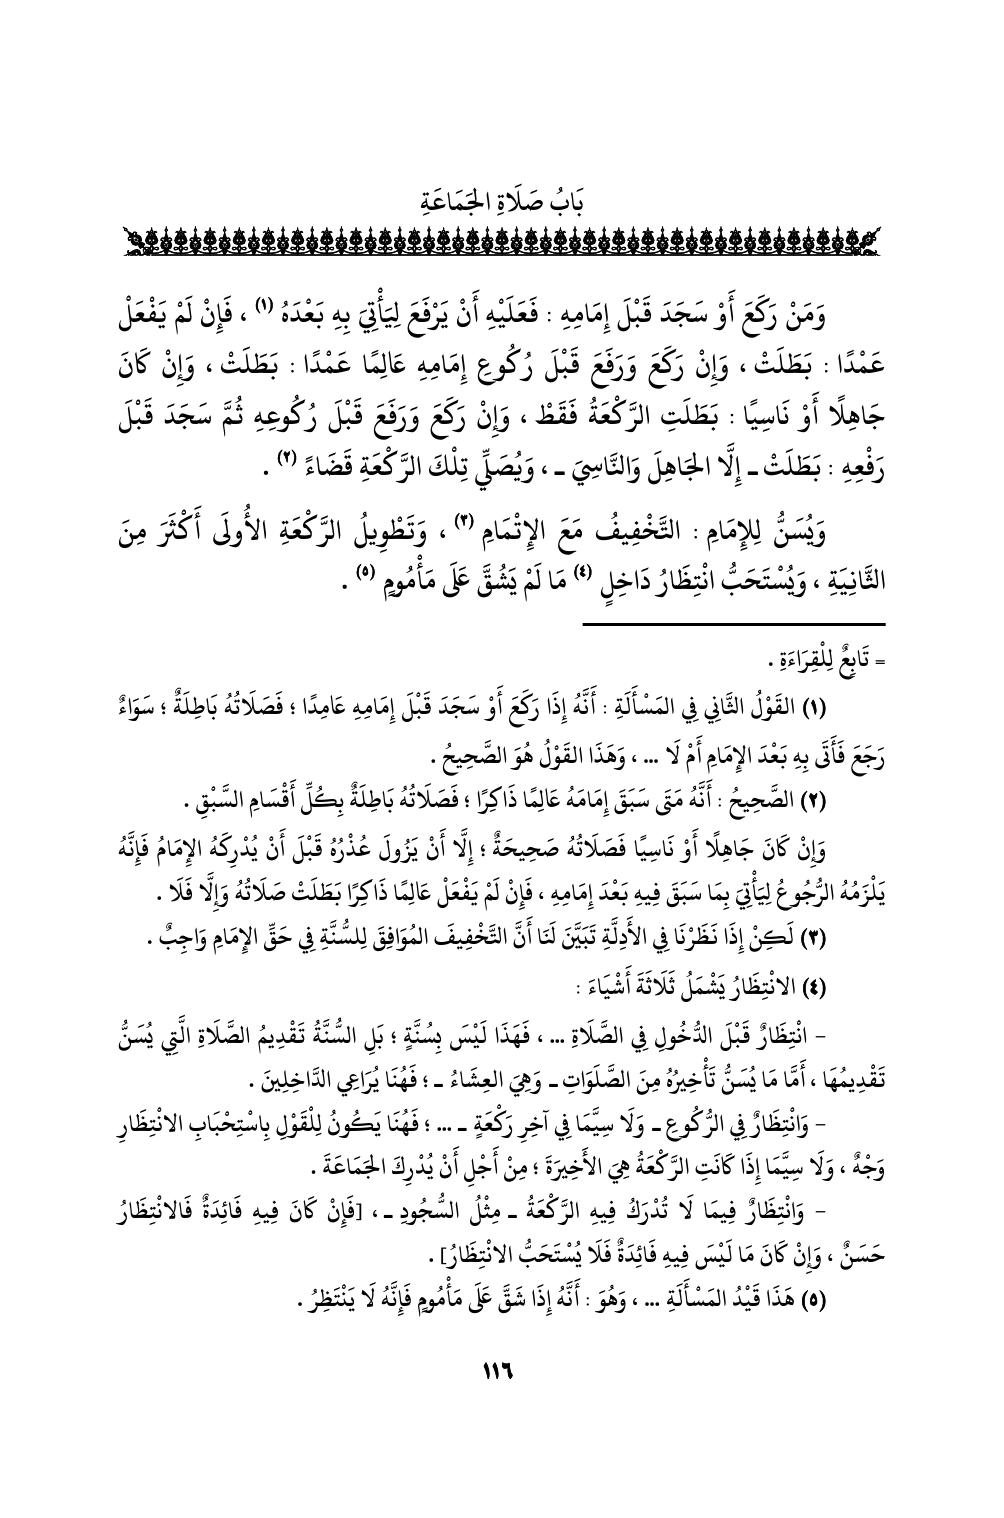 بَابُ صَلَاةِ الجَمَاعَةِ
وَمَنْ رَكَعَ أَوْ سَجَدَ قَبْلَ إِمَامِهِ : فَعَلَيْهِ أَنْ يَرْفَعَ لِيَأْتِيَ بِهِ بَعْدَهُ (١) ، فَإِنْ لَمْ يَفْعَلْ
عَمْدًا : بَطَلَتْ ، وَإِنْ رَكَعَ وَرَفَعَ قَبْلَ رُكُوعِ إِمَامِهِ عَالِمًا عَمْدًا : بَطَلَتْ ، وَإِنْ كَانَ
جَاهِلًا أَوْ نَاسِيًا : بَطَلَتِ الرَّكْعَةُ فَقَطْ ، وَإِنْ رَكَعَ وَرَفَعَ قَبْلَ رُكُوعِهِ ثُمَّ سَجَدَ قَبْلَ
رَفْعِهِ : بَطَلَتْ ـ إِلَّا الجَاهِلَ وَالنَّاسِيَ ـ ، وَيُصَلِّي تِلْكَ الرَّكْعَةِ قَضَاءً (٢) .
وَيُسَنُّ لِلإِمَامِ : التَّخْفِيفُ مَعَ الإِتْمَامِ (٣) ، وَتَطْوِيلُ الرَّكْعَةِ الأُولَى أَكْثَرَ مِنَ
الثَّانِيَةِ ، وَيُسْتَحَبُّ انْتِظَارُ دَاخِلٍ (٤) مَا لَمْ يَشُقَّ عَلَى مَأْمُومٍ (٥) .
= تَابِعٌ لِلْقِرَاءَةِ .
(١) القَوْلُ الثَّانِي فِي المَسْأَلَةِ : أَنَّهُ إِذَا رَكَعَ أَوْ سَجَدَ قَبْلَ إِمَامِهِ عَامِدًا ؛ فَصَلَاتُهُ بَاطِلَةٌ ؛ سَوَاءٌ
رَجَعَ فَأَتَى بِهِ بَعْدَ الإِمَامِ أَمْ لَا ... ، وَهَذَا القَوْلُ هُوَ الصَّحِيحُ .
(٢) الصَّحِيحُ : أَنَّهُ مَتَى سَبَقَ إِمَامَهُ عَالِمًا ذَاكِرًا ؛ فَصَلَاتُهُ بَاطِلَةٌ بِكُلِّ أَقْسَامِ السَّبْقِ .
وَإِنْ كَانَ جَاهِلًا أَوْ نَاسِيًا فَصَلَاتُهُ صَحِيحَةٌ ؛ إِلَّا أَنْ يَزُولَ عُذْرُهُ قَبْلَ أَنْ يُدْرِكَهُ الإِمَامُ فَإِنَّهُ
يَلْزَمُهُ الرُّجُوعُ لِيَأْتِيَ بِمَا سَبَقَ فِيهِ بَعْدَ إِمَامِهِ ، فَإِنْ لَمْ يَفْعَلْ عَالِمًا ذَاكِرًا بَطَلَتْ صَلَاتُهُ وَإِلَّا فَلَا .
(٣) لَكِنْ إِذَا نَظَرْنَا فِي الأَدِلَّةِ تَبَيَّنَ لَنَا أَنَّ التَّخْفِيفَ المُوَافِقَ لِلسُّنَّةِ فِي حَقِّ الإِمَامِ وَاجِبٌ .
(٤) الانْتِظَارُ يَشْمَلُ ثَلَاثَةَ أَشْيَاءَ :
- انْتِظَارٌ قَبْلَ الدُّخُولِ فِي الصَّلَاةِ ... ، فَهَذَا لَيْسَ بِسُنَّةٍ ؛ بَلِ السُّنَّةُ تَقْدِيمُ الصَّلَاةِ الَّتِي يُسَنُّ
تَقْدِيمُهَا ، أَمَّا مَا يُسَنُّ تَأْخِيرُهُ مِنَ الصَّلَوَاتِ ـ وَهِيَ العِشَاءُ ـ ؛ فَهُنَا يُرَاعِي الدَّاخِلِينَ .
- وَانْتِظَارٌ فِي الرُّكُوعِ ـ وَلَا سِيَّمَا فِي آخِرِ رَكْعَةٍ ـ ... ؛ فَهُنَا يَكُونُ لِلْقَوْلِ بِاسْتِحْبَابِ الانْتِظَارِ
وَجْهٌ ، وَلَا سِيَّمَا إِذَا كَانَتِ الرَّكْعَةُ هِيَ الأَخِيرَةَ ؛ مِنْ أَجْلِ أَنْ يُدْرِكَ الجَمَاعَةَ .
- وَانْتِظَارٌ فِيمَا لَا تُدْرَكُ فِيهِ الرَّكْعَةُ ـ مِثْلُ السُّجُودِ ـ ، [فَإِنْ كَانَ فِيهِ فَائِدَةٌ فَالانْتِظَارُ
حَسَنٌ ، وَإِنْ كَانَ مَا لَيْسَ فِيهِ فَائِدَةٌ فَلَا يُسْتَحَبُّ الانْتِظَارُ] .
(٥) هَذَا قَيْدُ المَسْأَلَةِ ... ، وَهُوَ : أَنَّهُ إِذَا شَقَّ عَلَى مَأْمُومٍ فَإِنَّهُ لَا يَنْتَظِرُ .
١١٦